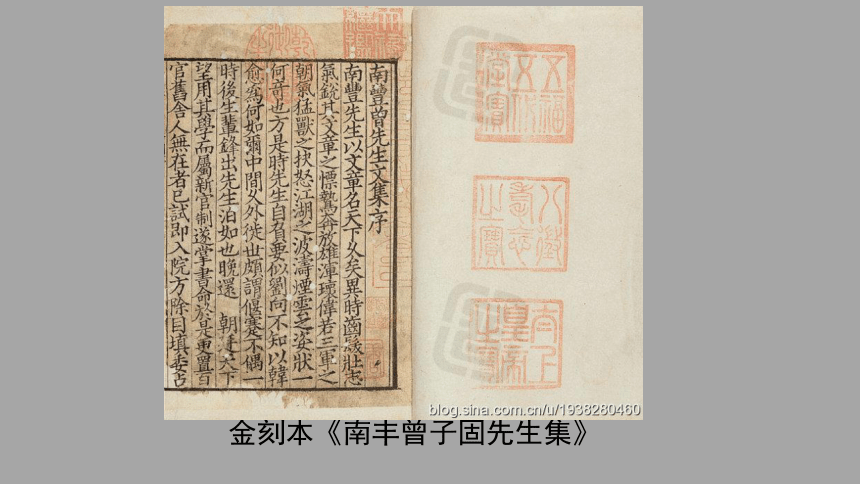 五福五代堂寶
八徵耄念之寶
太上皇帝之寶
南豐曽先生文集序
南豐先生以文章名天下久矣異時齒髮壯志
氣銳其文章之慓鷙奔放雄渾瓌偉若三軍之
朝氣猛獸之抉怒江湖之波濤煙雲之姿狀一
何奇也方是時先生自負要似劉向不知以韓
愈爲何如爾中間久外徙世頗謂偃蹇不偶一
時後生輩鋒出先生泊如也晚還 朝廷天下
望用其學而屬新官制遂掌書命於是更置百
官舊舍人無在者已試即入院方除目填委占
blog.sina.com.cn/u/1938280460
金刻本《南丰曾子固先生集》